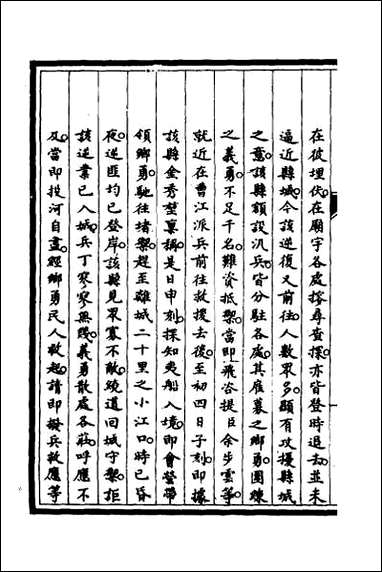 在彼埋伏在廟宇各處搜尋查探亦皆登時退去並未
逼近縣城今該逆復又前往人數眾多顯有攻擾縣城
之意該縣額設汛兵皆分駐各處其雇募之鄉勇團練
之義勇不足千名難資抵禦當即飛咨提臣余步雲等
就近在曹江派兵前往救援去後至初四日子刻即據
該縣金秀堃稟稱是日申刻探知夷船入境即會營帶
領鄉勇馳往堵禦趕至離城二十里之小江口時已昏
夜逆匪均已登岸該縣見眾寡不敵繞道回城守禦詎
該逆業已入城兵丁寥寥無幾義勇散處各莊呼應不
及當即投河自盡經鄉勇民人救起請即撥兵救應等